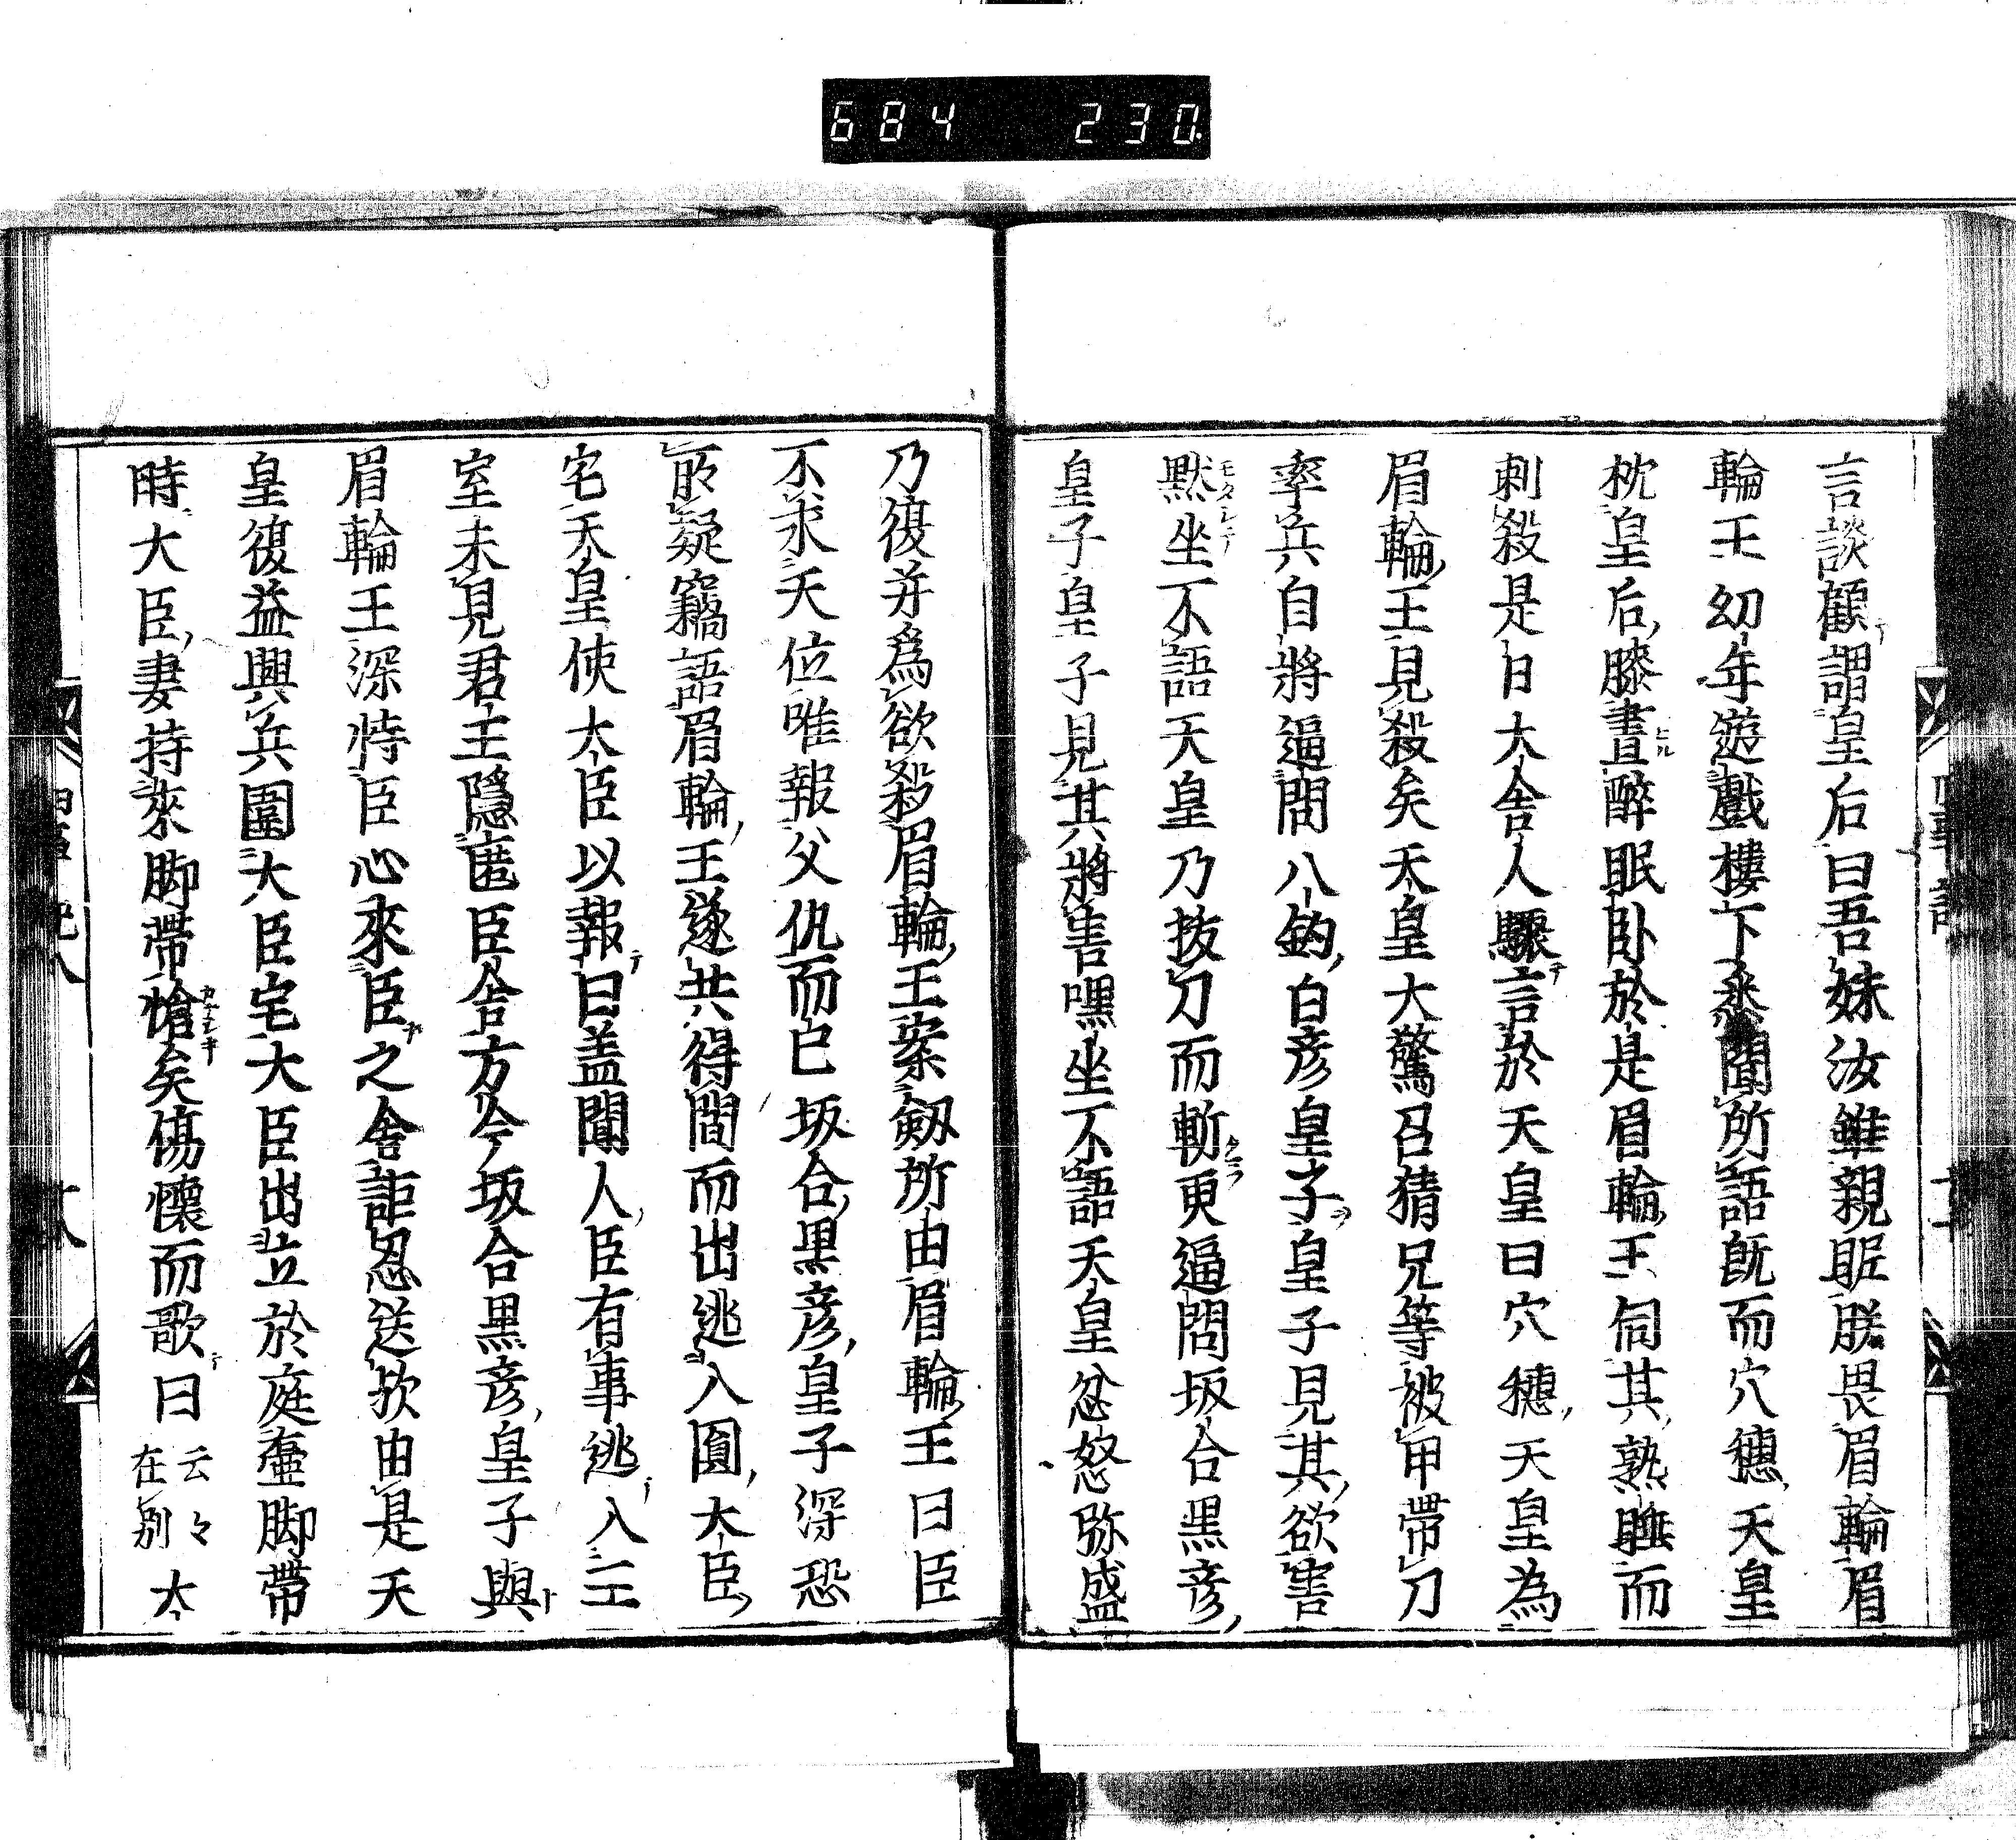 684 230
言談顧謂皇后曰吾妹汝雖親昵朕畏眉輪眉
輪王幼年遊戲樓下悉聞所語既而穴穗天皇
枕皇后膝晝醉眠卧於是眉輪王伺其熟睡而
刺殺是日大舎人驟言於天皇曰穴穗天皇為
眉輪王見殺矣天皇大驚召猜兄等被甲帶刀
率兵自將逼問八鈎白彦皇子皇子見其欲害
默坐不語天皇乃抜刀而斬更逼問坂合黒彦
皇子皇子見其將害嘿坐不語天皇忿怒弥盛
乃復并爲欲殺眉輪王案劔所由眉輪王曰臣
不求天位唯報父仇而已坂合黒彦皇子深恐
所疑竊語眉輪王遂共得間而出逃入圓大臣
宅天皇使大臣以報曰盖聞人臣有事逃入王
室未見君王隱匿臣舎方今坂合黒彦皇子與
眉輪王深恃臣心來臣之舎詎忍送欤由是天
皇復益興兵圍大臣宅大臣出立於庭壷脚帶
時大臣妻持來脚帶愴矣傷懷而歌曰云々在別大